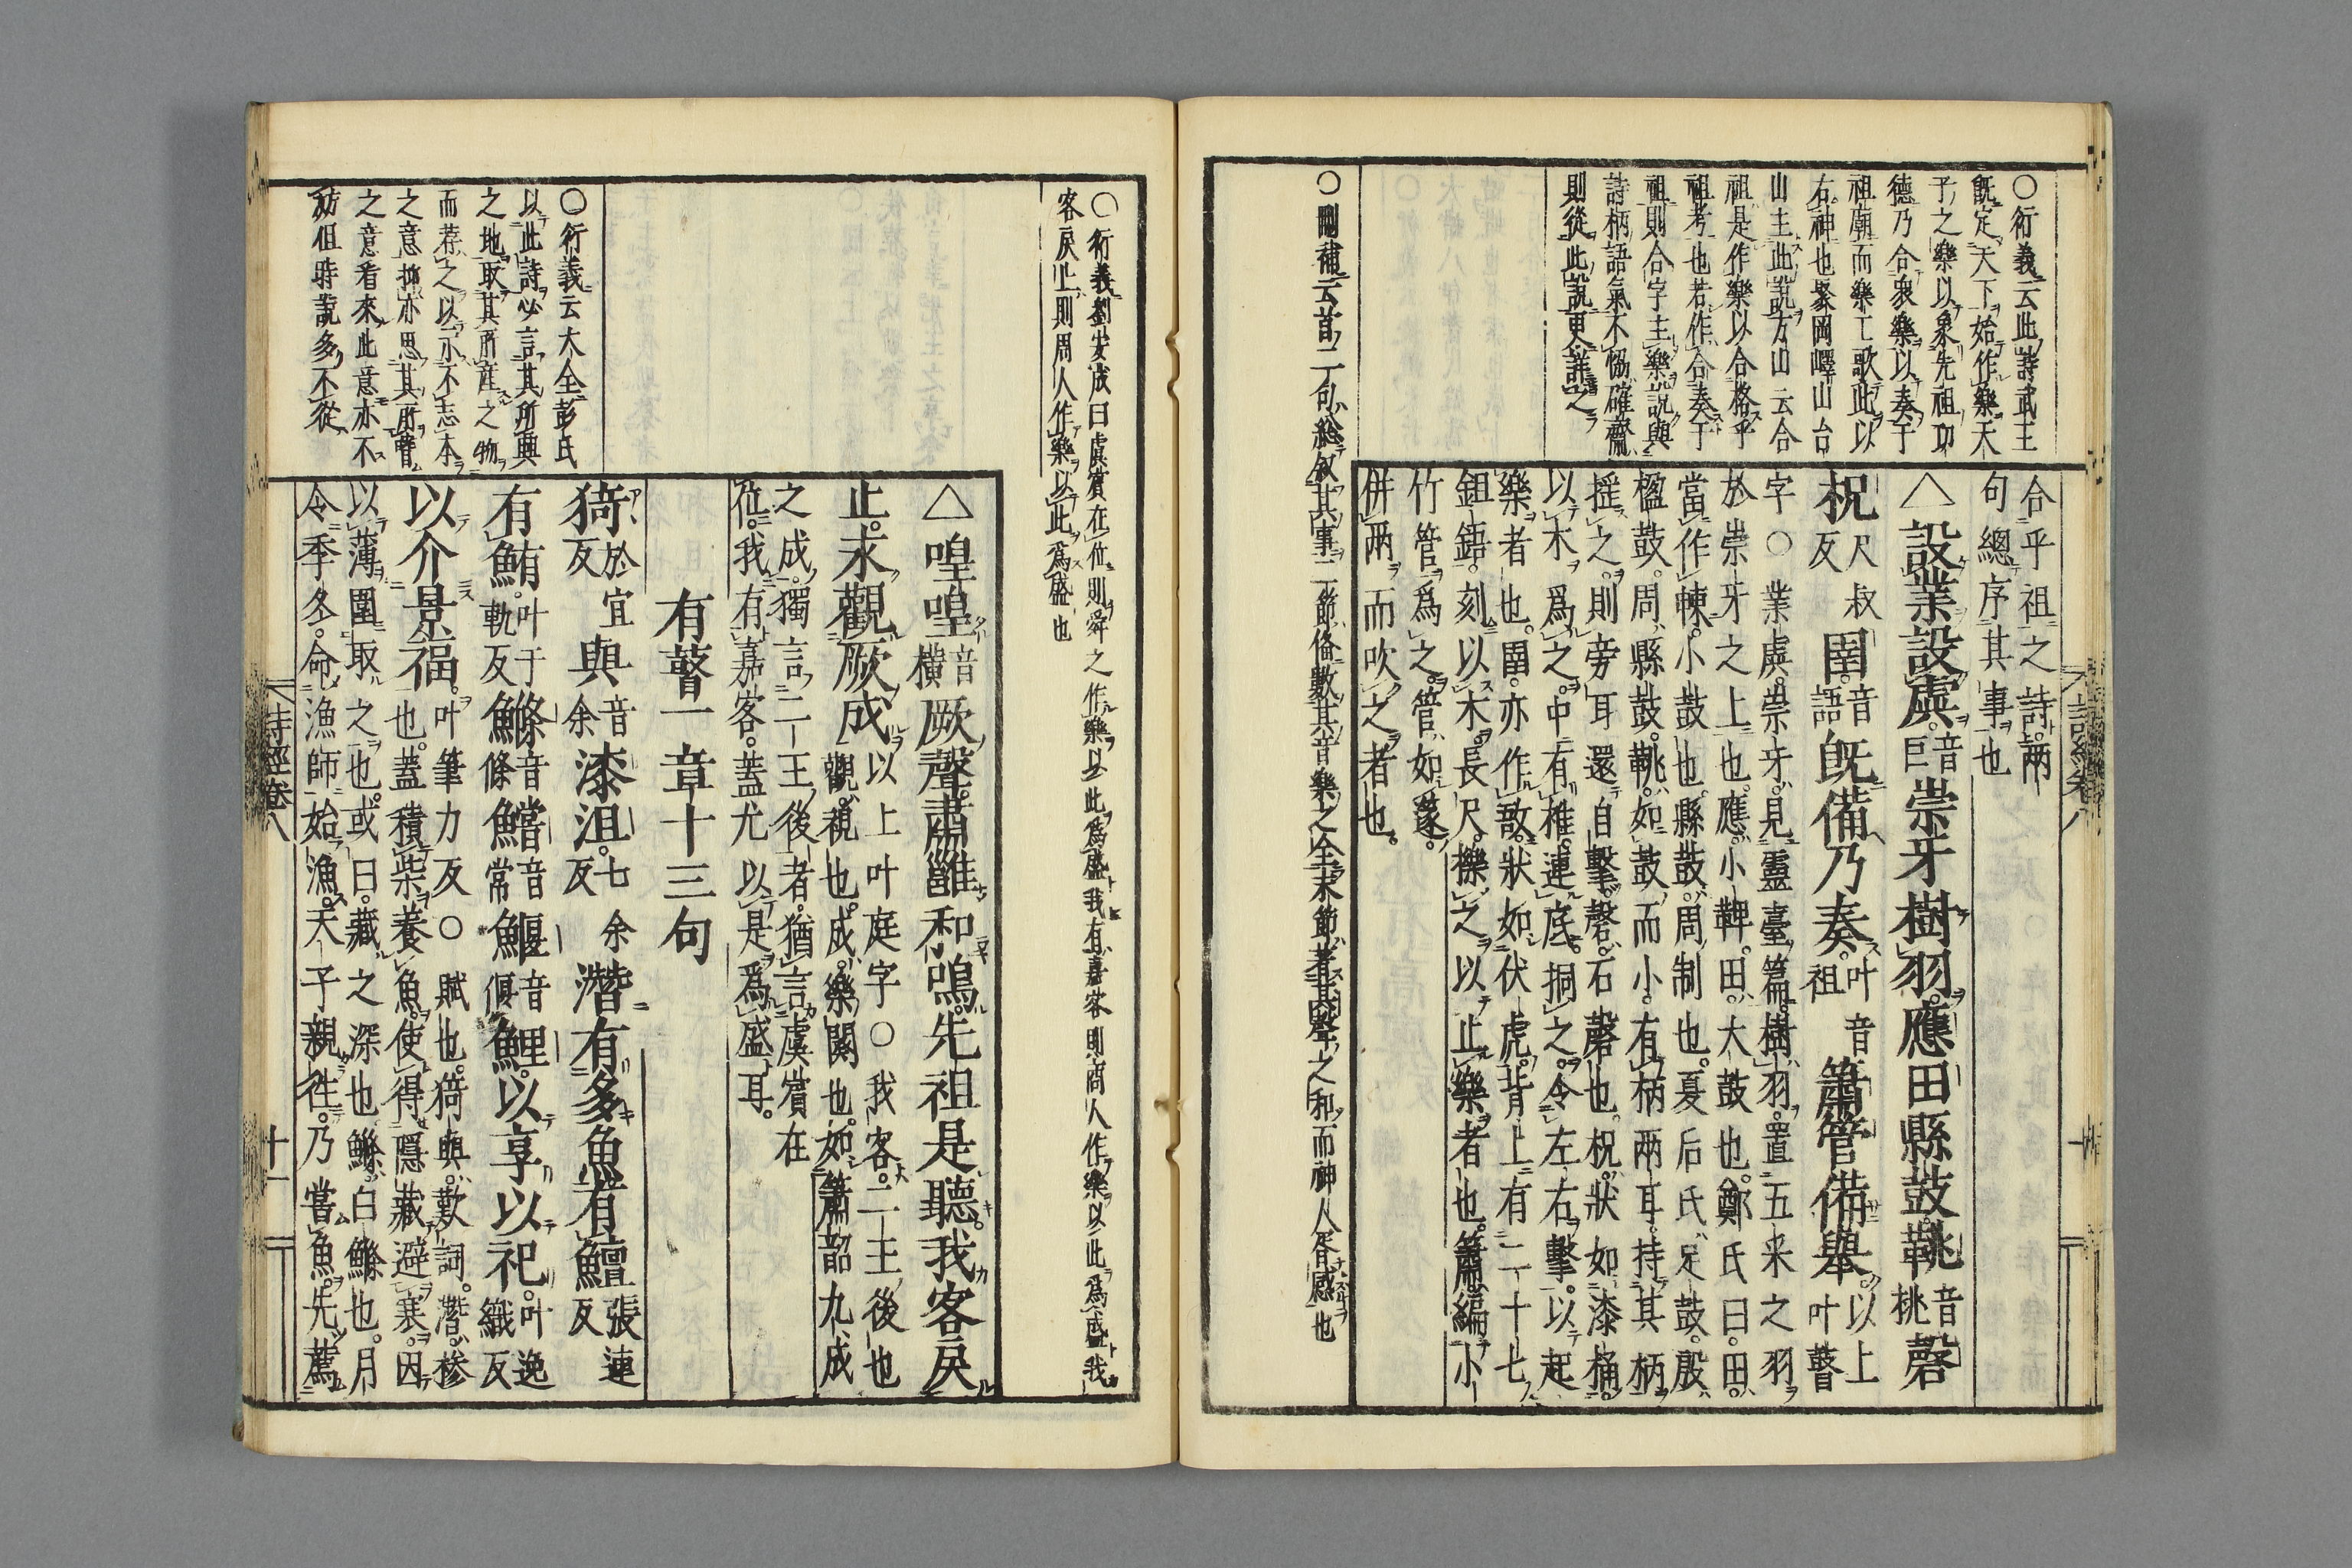 ○衍義云此詩武王
旣定天下始作樂天
予之樂以象先祖功
德乃合衆樂以奏于
祖廟而樂工歌此以
右神也
山主此說方山云合
祖是作樂以合格乎
祖考也若作合奏于
祖則合字主樂說與
詩柄語氣不恊確齋
則從此說更詳之
合乎祖之詩兩
句總序其事也
△設業設虡音巨崇牙樹羽應田縣鼓鞉音桃磬
柷尺叔反圉音語旣備乃奏叶音祖簫管備舉以上叶瞽
字○業虡崇牙見靈臺篇樹羽置五采之羽
於崇牙之上也應小鞞田大鼓也鄭氏曰田
當作朄小鼓也縣鼓周制也夏后氏足鼓殷
楹鼓周縣鼓鞉如鼓而小有柄兩耳持其柄
搖之則旁耳還自擊磬石磬也柷狀如漆桶
以木爲之中有椎連底挏之令左右擊以起
樂者也圉亦作敔狀如伏虎背上有二十七
鉏鋙刻以木長尺擽之以止樂者也簫編小
竹管爲之管如篴
併兩而吹之者也
○刪補云首二句總叙其事二節俻數其音樂之全末節著其聲之和而神人皆感也
詩經卷八
十一
○衍義劉安成曰虞賓在位則舜之作樂以此爲盛我有嘉客則商人作樂以此爲盛我
客戾止則周人作樂以此爲盛也
△喤喤音橫厥聲肅雝和鳴先祖是聽我客戾
止永觀厥成以上叶庭字○我客二王後也
觀視也成樂闋也如簫韶九成
之成獨言二王後者猶言虞賓在
位我有嘉客蓋尤以是爲盛耳
有瞽一章十三句
○衍義云大全彭氏
以此詩必言其所興
之地取其所產之物
而荐之以示不忘本
之意抑亦思其所嘗
之意看來此意亦不
妨但時說多不從
猗於宜反與音余漆沮七余反潛有多魚有鱣張連反
有鮪叶于軌反鰷音條鱨音常鰋音偃鯉以享以祀叶逸織反
以介景福叶筆力反○賦也猗與歎詞潛槮
也蓋積柴養魚使得隱藏避寒因
以薄圍取之也或曰藏之深也鰷白鰷也月
令季冬命漁師始漁天子親往乃嘗魚先薦
詩經卷八
十一